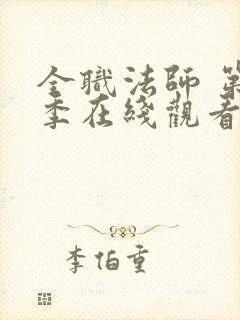 全職法師 第
季在綫觀看
李伯重